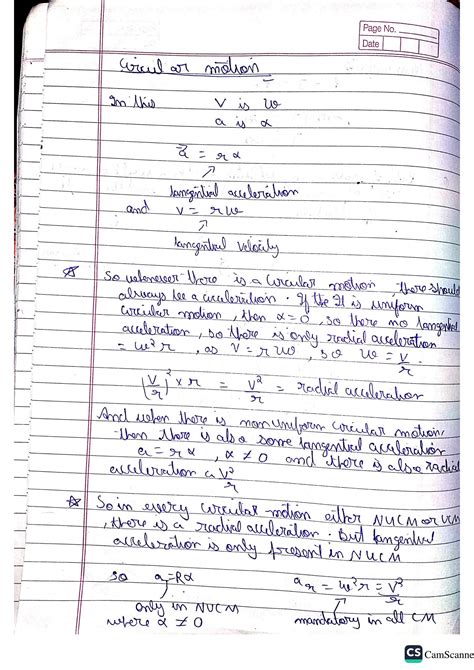 Page No.
Date
Circular motion
In this V is w
a is α
a = rα
tangential acceleration
and v = rw
tangential velocity
So whenever there is a circular motion, there should
always be a acceleration. If the It is uniform
circular motion, then α=0, so there no tangential
acceleration, so there is only radial acceleration
= w²r, as V = rw, so w = V/r
(V/r)² × r = V²/r = radial acceleration
And when there is nonuniform circular motion,
then there is also some tangential acceleration
a = rα, α ≠ 0 and there is also radial
acceleration a V²/r
So in every circular motion either NUCM or UCM
, there is a radial acceleration. But tangential
acceleration is only present in NUCM
so a=Rα aᵣ = w²r = V²/r
only in NUCM mandatory in all CM
where α ≠ 0
CS CamScanne